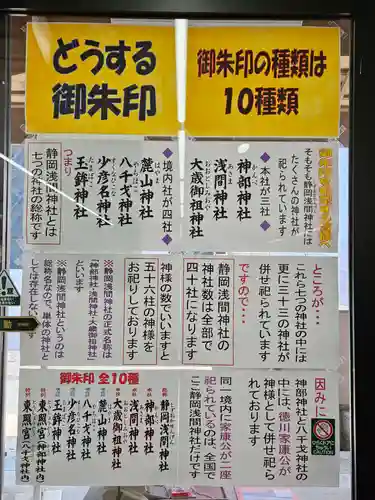 どうする
御朱印
御朱印の種類は
10種類
そもそも静岡浅間神社には
たくさんの神社が
祀られています
◆本社が三社◆
かんべ
神部神社
あさま
浅間神社
おおとしみおや
大歳御祖神社
◆境内社が四社◆
はやま
麓山神社
やちほこ
八千戈神社
すくなひこな
少彦名神社
たまぼこ
玉鉾神社
つまり
静岡浅間神社とは
七つの神社の総称です
ところが…
これら七つの神社の中には
更に三十三の神社が
併せ祀られています
ですので…
静岡浅間神社の
神社数は全部で
四十社になります
神様の数でいいますと
五十六柱の神様を
お祀りしております
※静岡浅間神社の正式名称は
「神部神社・浅間神社・大歳御祖神社」
といいます
※静岡浅間神社というのは
総称名なので、単体の神社と
しては存在しない
因みに
神部神社と八千戈神社の
中には、徳川家康公が
神様として併せ祀ら
れております
同一境内に家康公が二座
祀られているのは、全国で
ここ静岡浅間神社だけです
御朱印 全10種
静岡浅間神社
神部神社
浅間神社
大歳御祖神社
麓山神社
八千戈神社
少彦名神社
玉鉾神社
東照宮(神部神社内)
東照宮(八千戈神社内)